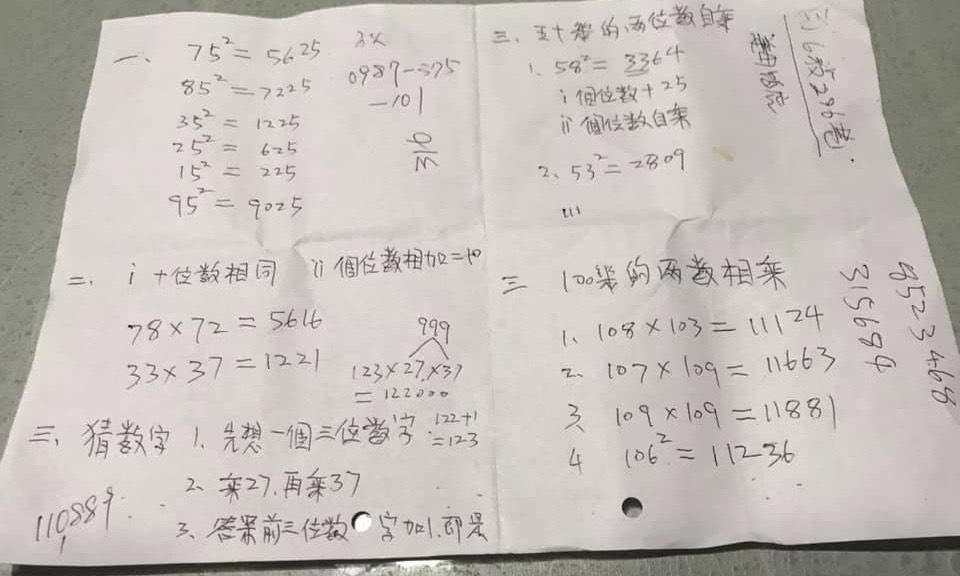 一、 75² = 5625
85² = 7225
35² = 1225
25² = 625
15² = 225
95² = 9025
3x
0987-375
-101
二、 i 十位數相同 ii 個位數相加=10
78×72 = 5616
33×37 = 1221
999
123×27×37
= 122000
三、猜數字 1、先想一個三位數字
122+1
=123
2、乘27,再乘37
3、答案前三位數字加1.即是
110889
三、五十幾的兩位數自乘
1. 58² = 3364
i 個位數+25
ii 個位數自乘
2、53² = 2809
三 100幾的兩數相乘
1、108×103 = 11124
2、107×109 = 11663
3 109×109 = 11881
4 106² = 11236
8523468
315684